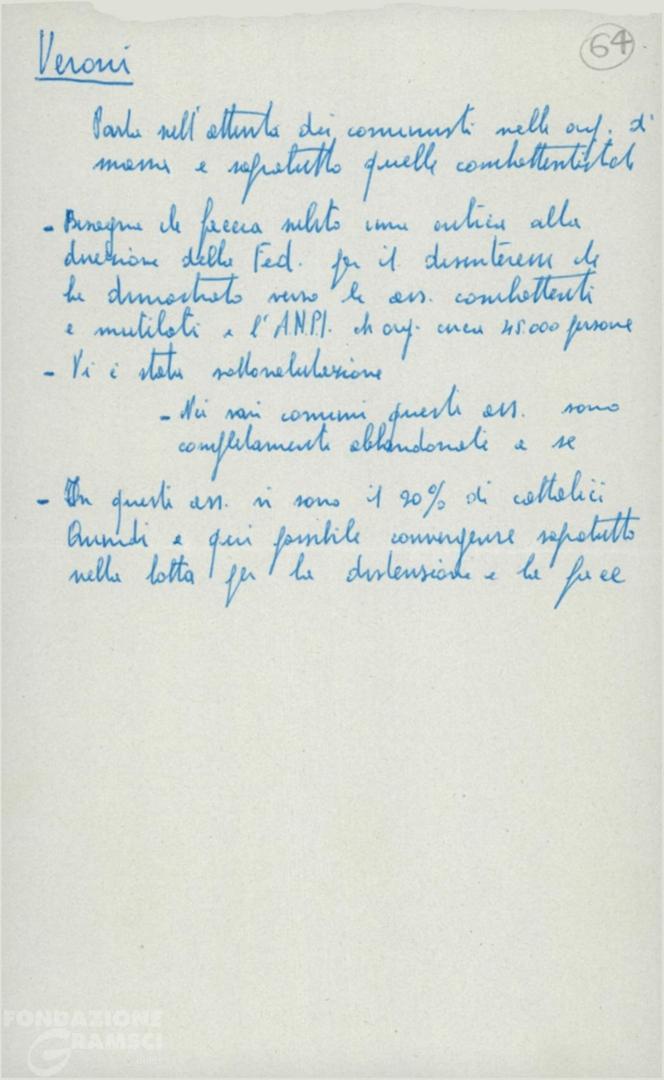 64
Veroni
Parla sull'attività dei comunisti nelle org. di
massa e sopratutto quelle combattentistiche
- Bisogna che faccia subito una critica alla
direzione della Fed. per il disinteresse che
ha dimostrato verso le ass. combattenti
e mutilati e l'A.N.P.I. ch org. circa 45.000 persone
- Vi è stata sottovalutazione
- Nei vari comuni queste ass. sono
completamente abbandonate a se
- In queste ass. vi sono il 90% di cattolici
Quindi e qui possibile convergenze sopratutto
nella lotta per la distensione e la pace
FONDAZIONE
GRAMSCI